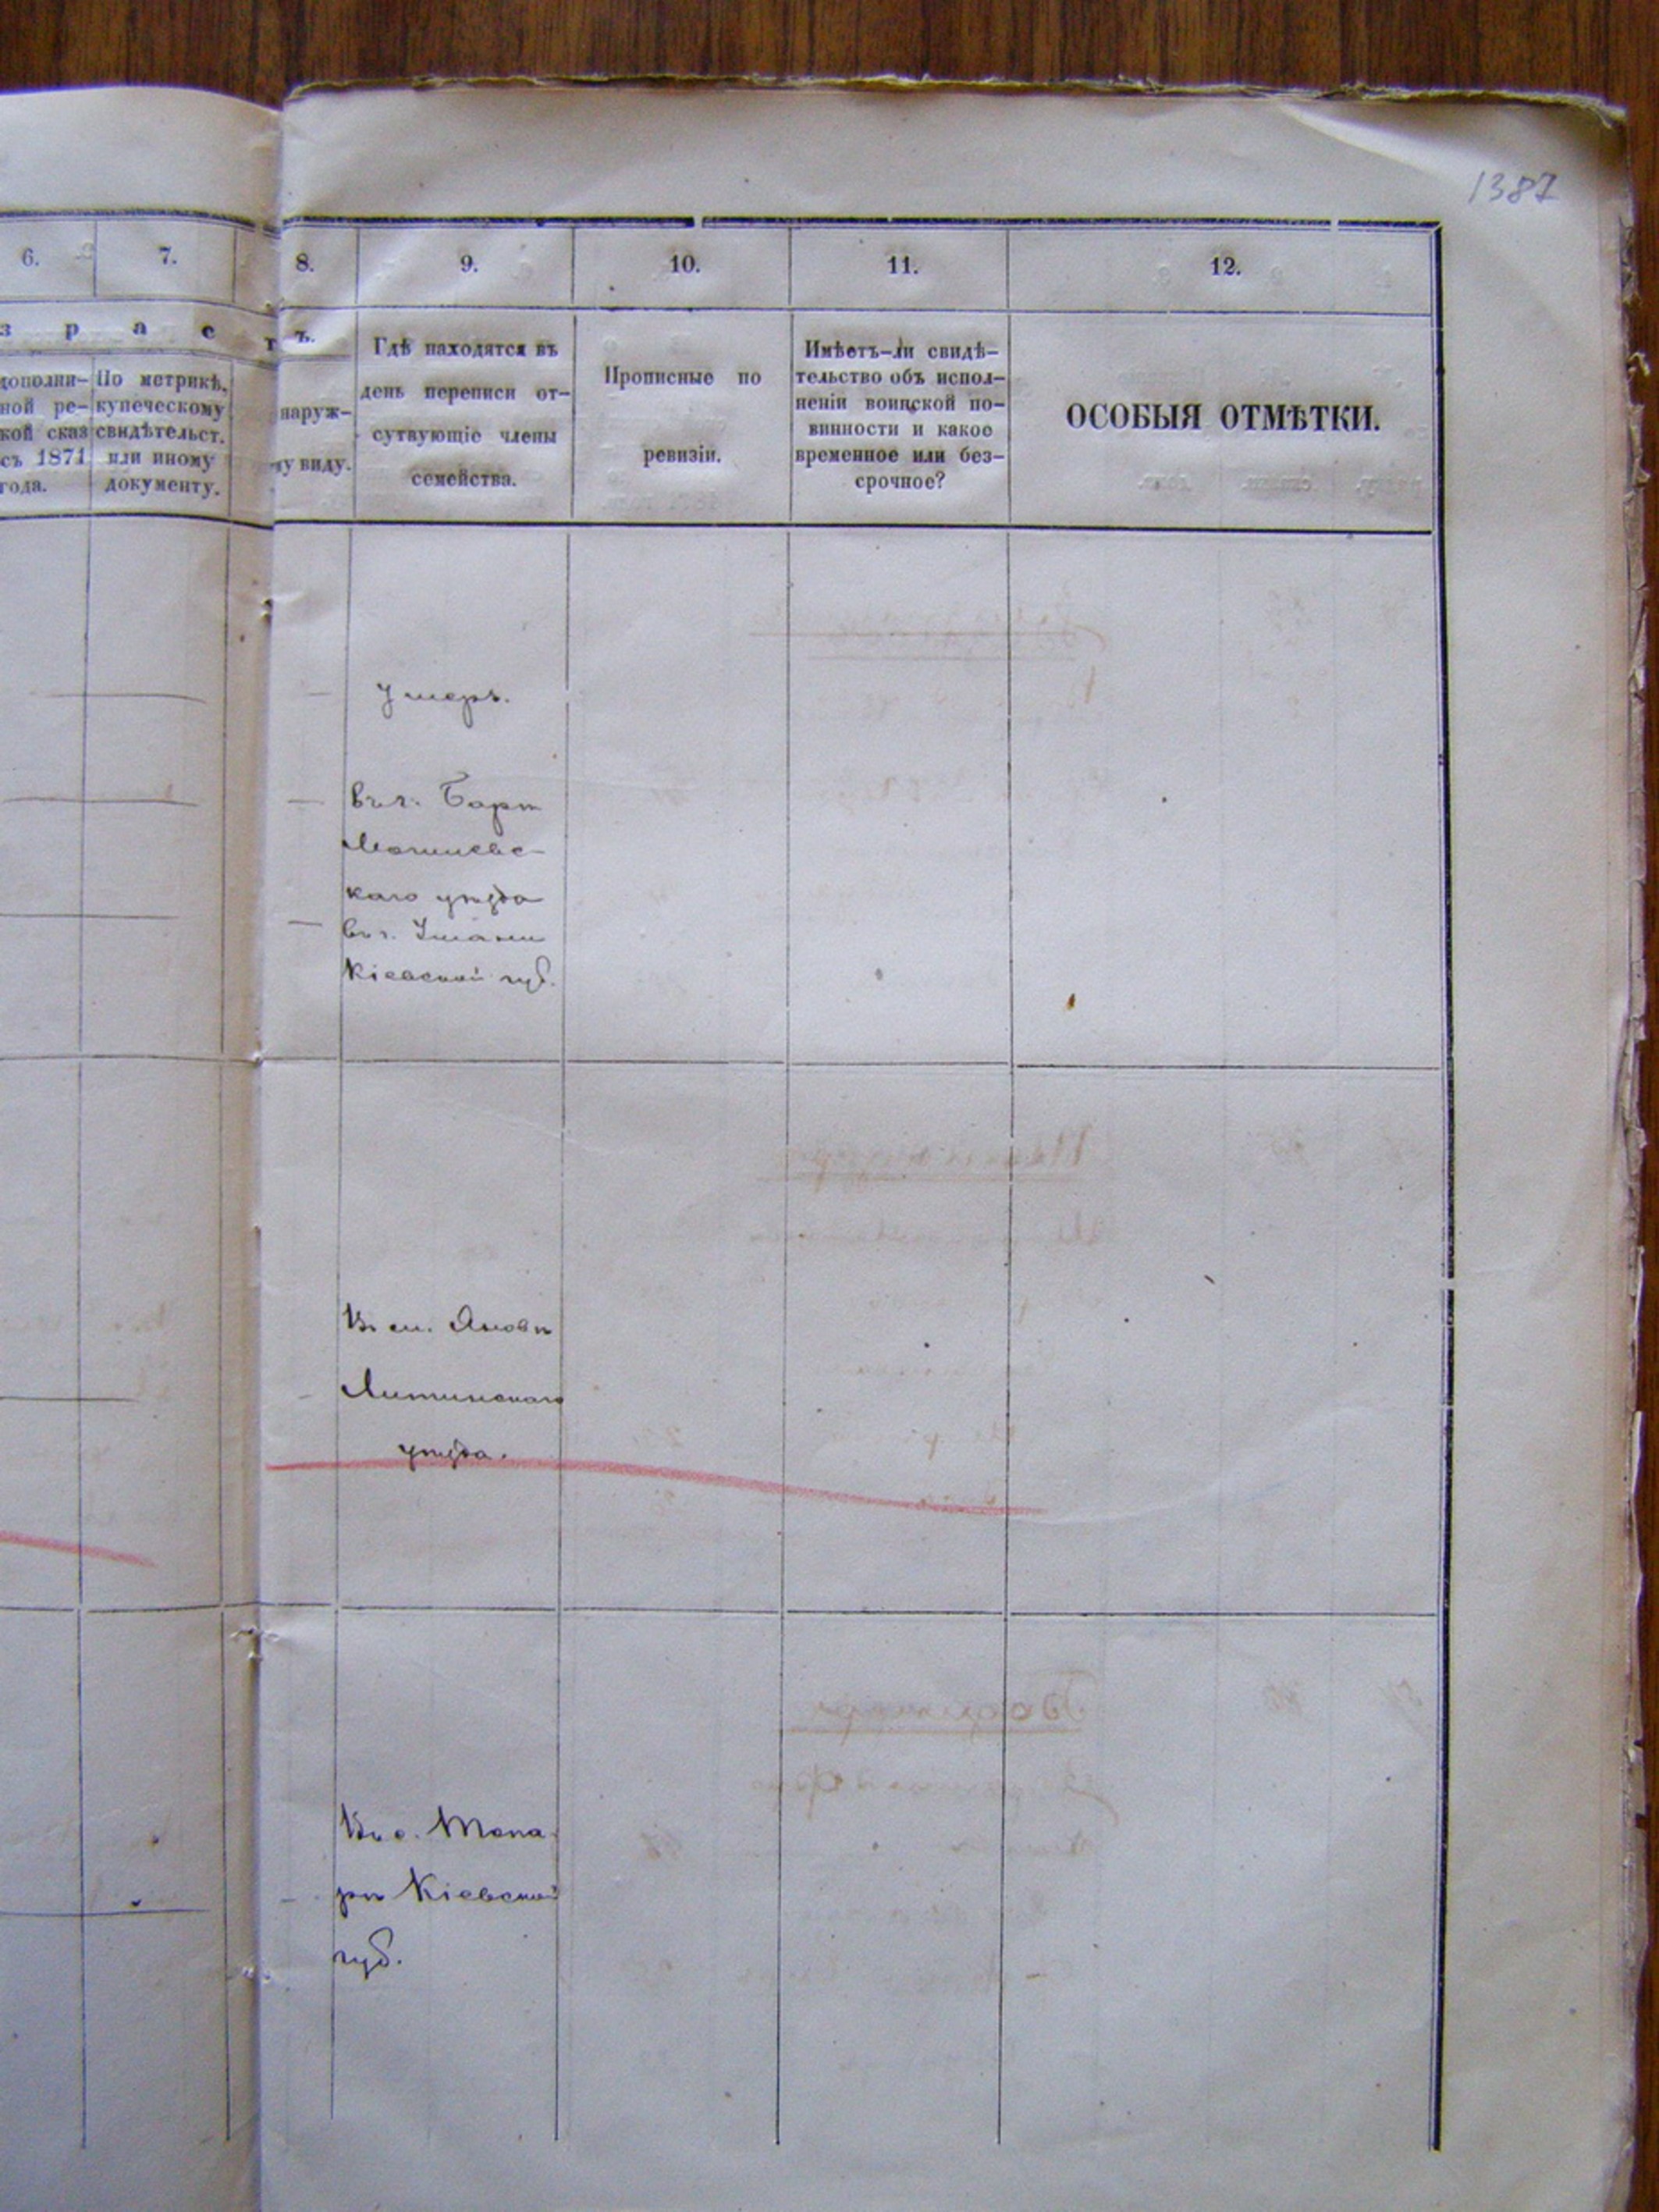 1387
6. 7. 8. 9. 10. 11. 12.
з р а с т ъ.
дополни-
ной ре-
кой сказ
съ 1871
года.
По метрикѣ,
купеческому
свидѣтельст.
или иному
документу.
наруж-
му виду.
Гдѣ находятся въ
день переписи от-
сутвующіе члены
семейства.
Прописные по
ревизіи.
Имѣетъ-ли свидѣ-
тельство объ испол-
неніи воинской по-
винности и какое
временное или без-
срочное?
ОСОБЫЯ ОТМѢТКИ.
Умеръ.
въ г. Барѣ
Могилевс-
каго уѣзда
въ г. Умани
Кіевской губ.
Въ м. Яновѣ
Литинскаго
уѣзда.
Въ с. Мона
рѣ Кіевской
губ.